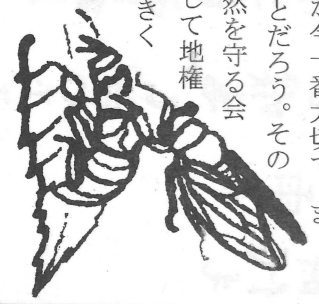 ま
が今一番大切で
とだろう。その
然を守る会
して地権
きく